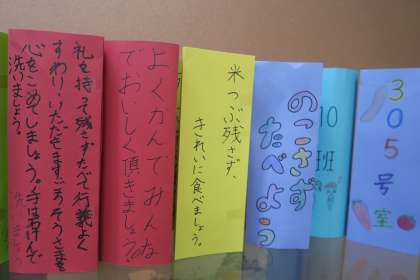 礼を持って残さずたべて行義よく
すわり、いただきます。ごちそうさまを
心をこめてしましょう。手は学んで
洗いましょう。
よくかんでみんな
でおいしく頂きましょう
米つぶ残さず、
きれいに食べましょう。
のこさず
たべよう
10
班
305号室